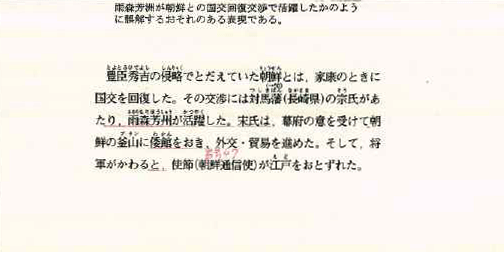 雨森芳洲が朝鮮との国交回復交渉で活躍したかのよう
に誤解するおそれのある表現である。
豊臣秀吉の侵略でとだえていた朝鮮とは，家康のときに
国交を回復した。その交渉には対馬藩(長崎県)の宗氏があ
たり，雨森芳州が活躍した。宋氏は，幕府の意を受けて朝
鮮の釜山に倭館をおき，外交・貿易を進めた。そして，将
軍がかわると，使節(朝鮮通信使)が江戸をおとずれた。